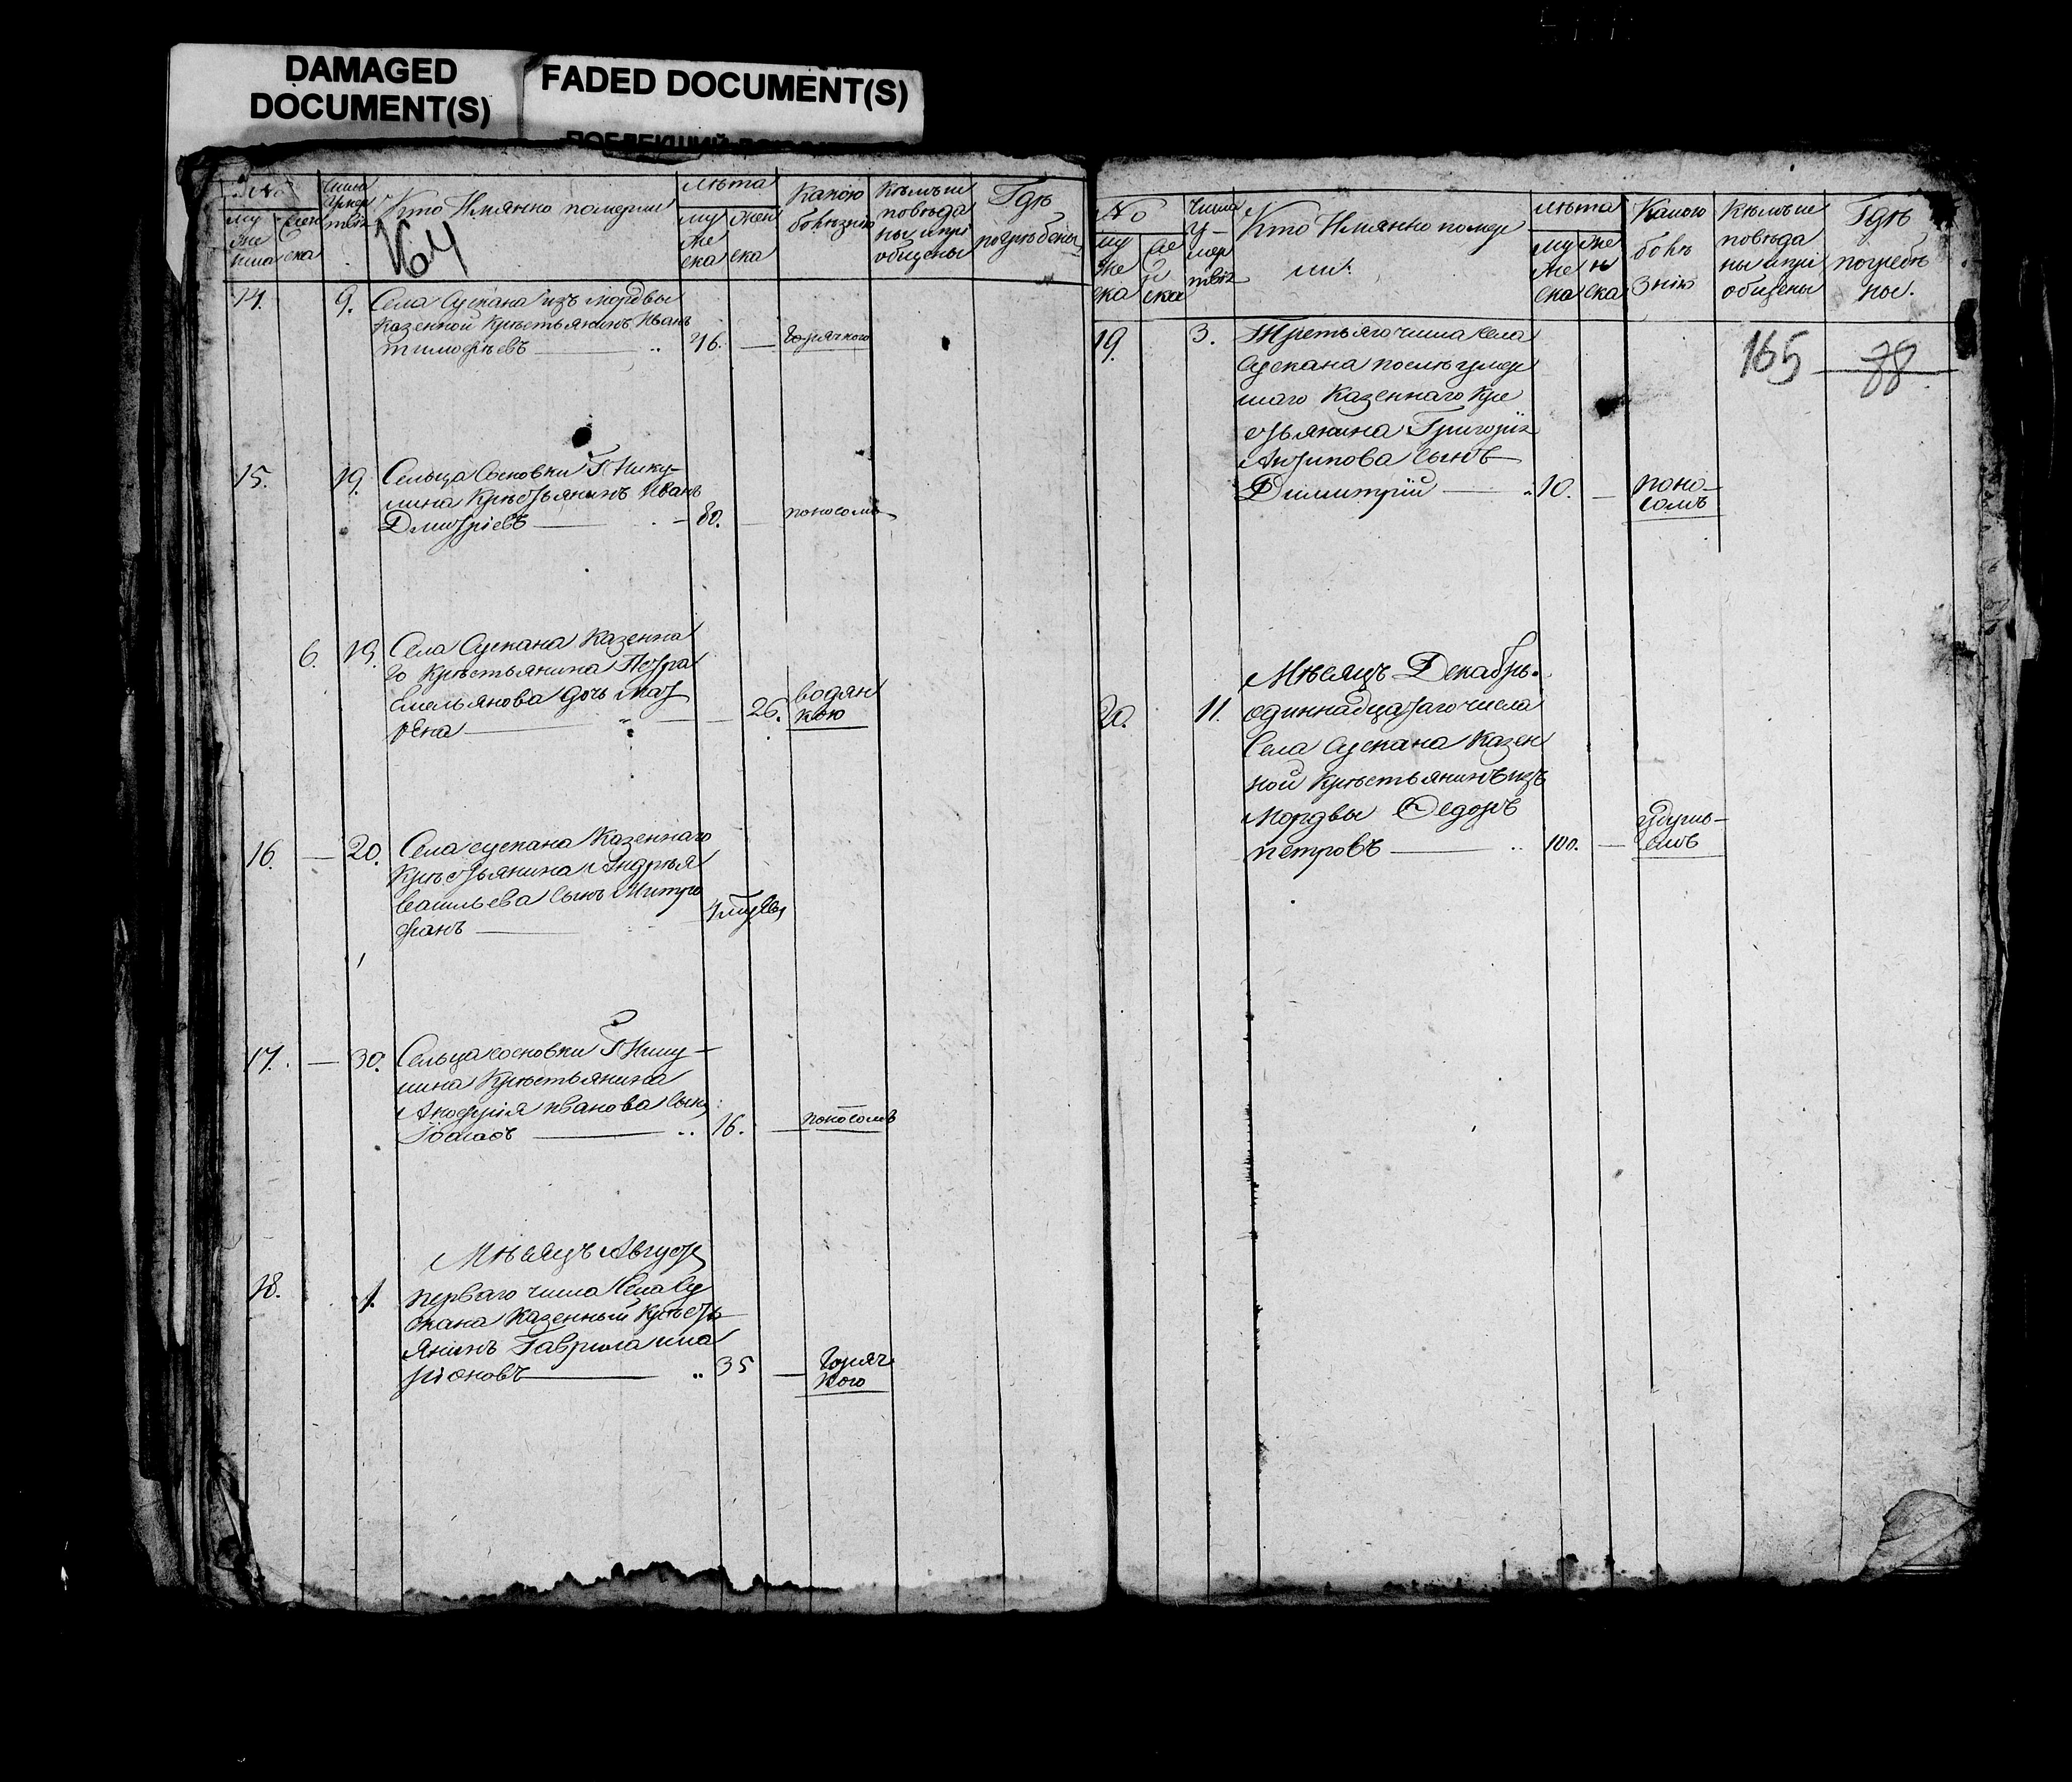 DAMAGED
DOCUMENT(S)
FADED DOCUMENT(S)
№
муже
женска
Кто Имянно померли
164
лѣта
муже
ска
жен
ска
Какою
болѣзнію
Кѣмъ ис
повѣда
ны и прі
общены
Гдѣ
погрѣбены
14.
9.
Села Сускана изъ мордвы
казенной крѣстьянинъ Иванъ
тимофѣевъ
46.
горячкою
15.
19.
Сельца Сосновки Г Нику-
лина Крѣстьянинъ Иванъ
Дмитріевъ
80.
поносомъ
6.
19.
Села Сускана Казенна
го Крѣстьянина Петра
Емельянова дочь Мат
рена
26.
водян
кою
16.
20.
Села сускана Казеннаго
Крѣстьянина Андрѣя
Васильева сынъ Митро
фанъ
17.
30.
Сельца сосновки Г Нику-
лина Крѣстьянина
Иванова сынъ
16.
поносомъ
Мѣсяцъ Августъ
18.
1.
перваго числа Села Су
скана Казенный Крѣсть
янинъ Гаврила ила
ріоновъ
35
горяч
кою
№
му
же
ска
же
н
ска
числа
у-
мер
твія
Кто Имянно померли.
лѣта
му
же
ска
же
н
ска
Какою
болѣ
знію
Кѣмъ ис
повѣда
ны и прі
общены
Гдѣ
погребѣ
ны.
165
88
19.
3.
Третьяго числа села
Сускана послѣ умер
шаго Казеннаго Кре
стьянина Григорія
Антипова сынъ
Димитрій
10.
поно-
сомъ
Мѣсяцъ Декабрь.
20.
11.
одиннадцатаго числа
Села Сускана Казен
ной Крѣстьянинъ изъ
Мордвы Федоръ
петровъ
100.